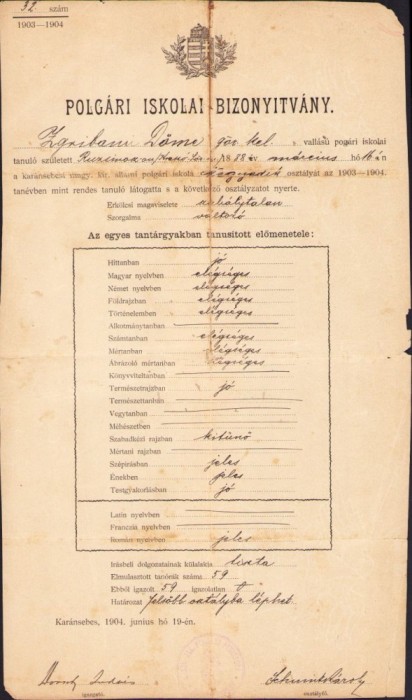 32. szám
1903—1904
POLGÁRI ISKOLAI BIZONYITVÁNY.
Zgriban Döme gör. kel. vallású pogári iskolai
tanuló született 1888 év március hó 16án
a karánsebesi állami polgári iskola negyedik osztályát az 1903—1904.
tanévben mint rendes tanuló látogatta s a következő osztályzatot nyerte.
Erkölcsi magaviselete szabálytalan
Szorgalma változó
Az egyes tantárgyakban tanusitott előmenetele:
Hittanban jó
Magyar nyelvben elégséges
Német nyelvben elégséges
Földrajzban elégséges
Történelemben elégséges
Alkotmánytanban
Számtanban elégséges
Mértanban elégséges
Ábrázoló mértanban elégséges
Könyvviteltanban
Természetrajzban jó
Természettanban
Vegytanban
Méhészetben
Szabadkézi rajzban kitünő
Mértani rajzban
Szépirásban jeles
Énekben jeles
Testgyakorlásban jó
Latin nyelvben
Francia nyelvben
Román nyelvben jeles
Irásbeli dolgozatainak külalakja tiszta
Elmulasztott tanórák száma 59
Ebből igazolt 59 igazolatlan
Határozat felsőbb osztályba léphet.
Karánsebes, 1904. junius hó 19-én.
igazgató. osztályfő.